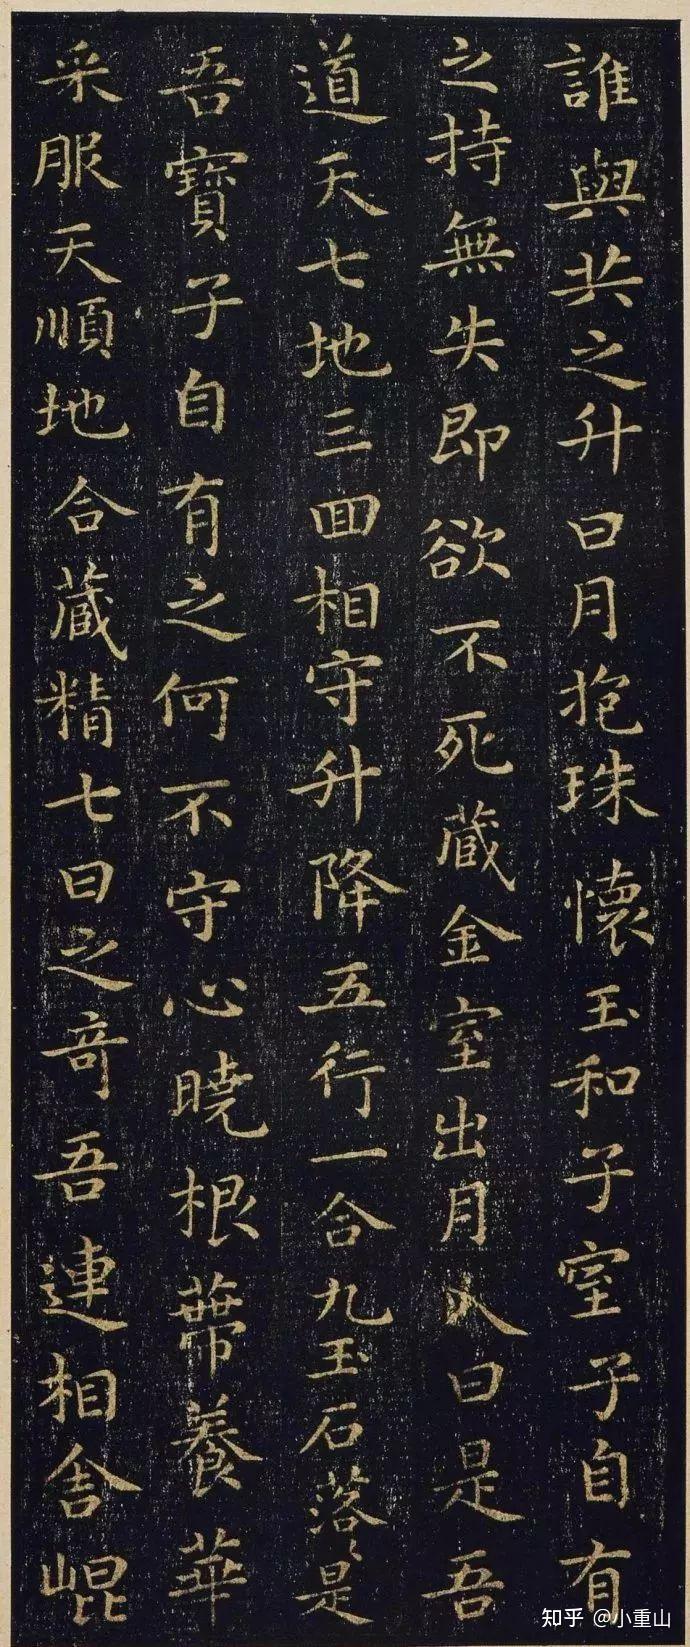 誰與共之升日月抱珠懷玉和子室子自有
之持無失即欲不死藏金室出月入日是吾
道天七地三回相守升降五行一合九玉石落落是
吾寶子自有之何不守心曉根蔕養華
采服天順地合藏精七日之奇吾連相舍崐
知乎 @小重山